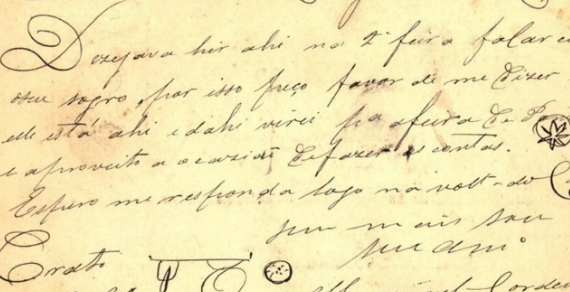 Dezejava hir ahi na 2ª feira falar co
oseu sogro, por isso peço favor de me dizer
elle está ahi e dahi virei pa afeira de P
e aproveito a ocazião de fazer as contas.
Espero me responda logo na volta do
sem mais sou
seu amº
Crato